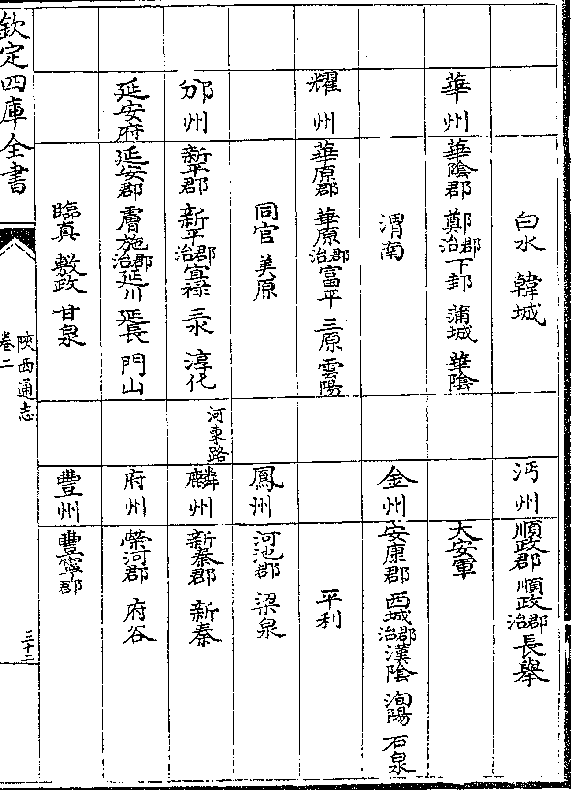 白水 韓城
華州 華陰郡 鄭郡治 下邽 蒲城 華陰
渭南
耀州 華原郡 華原郡治 富平 三原 雲陽
同官 美原
邠州 新平郡 新平郡治 宜禄 三水 淳化
延安府 延安郡 膚施郡治 延川 延長 門山
臨真 敷政 甘泉
沔州 順政郡 順政郡治 長舉
大安軍
金州 安康郡 西城郡治 漢陰 洵陽 石泉
平利
鳳州 河池郡 梁泉
河東路
麟州 新秦郡 新秦
府州 榮河郡 府谷
豐州 豐寧郡
欽定四庫全書
陝西通志
卷二
三十二